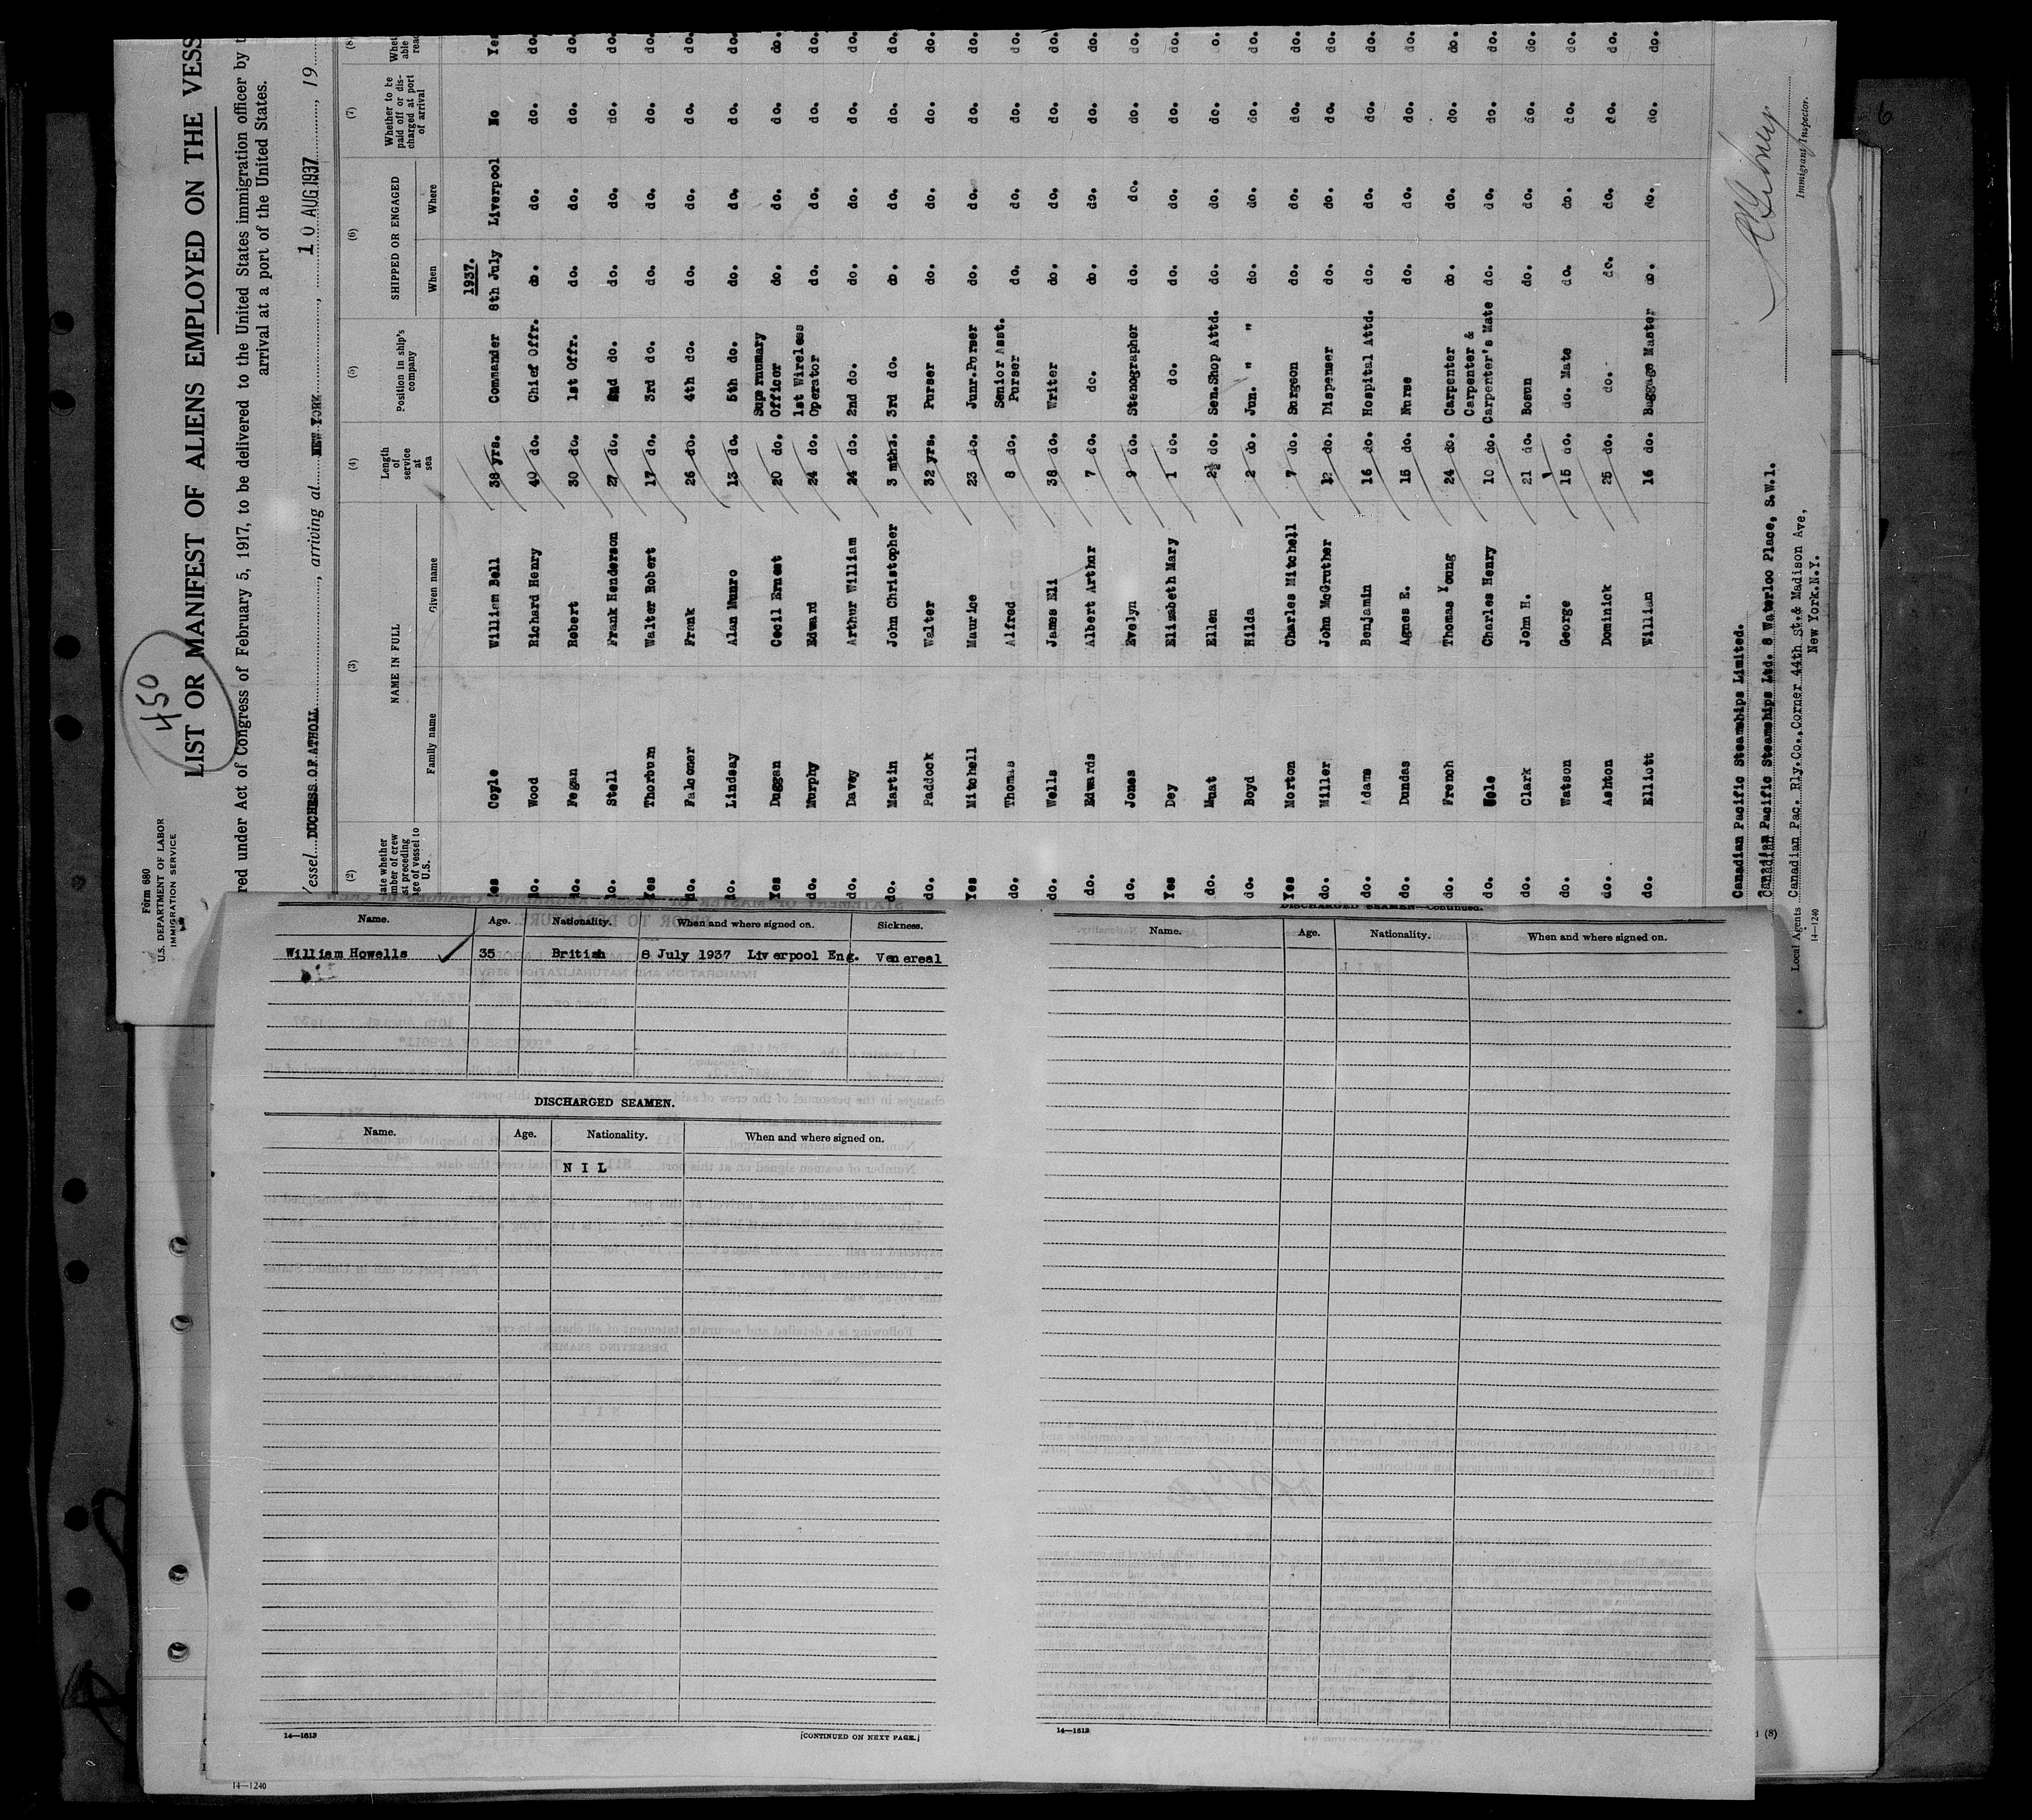 450
Form 680
U.S. DEPARTMENT OF LABOR
IMMIGRATION SERVICE
LIST OR MANIFEST OF ALIENS EMPLOYED ON THE VESS
red under Act of Congress of February 5, 1917, to be delivered to the United States immigration officer by t
arrival at a port of the United States.
Vessel DUCHESS OF ATHOLL, arriving at NEW YORK, 10 AUG 1937, 19
(2) (3) (4) (5) (6) (7) (8)
NAME IN FULL
Family name Given name
Length of service at sea
Position in ship's company
SHIPPED OR ENGAGED
When Where
Whether to be paid off or discharged at port of arrival
1937.
Yes Coyle William Bell 38 yrs. Commander 8th July Liverpool No Yes
do. Wood Richard Henry 40 do. Chief Offr. do. do. do. do.
do. Fegan Robert 30 do. 1st Offr. do. do. do. do.
do. Stell Frank Henderson 27 do. 2nd do. do. do. do. do.
Yes Thorburn Walter Robert 17 do. 3rd do. do. do. do. do.
do. Falconer Frank 26 do. 4th do. do. do. do. do.
do. Lindsay Alan Munro 13 do. 5th do. do. do. do. do.
Yes Duggan Cecil Ernest 20 do. Supernumary Officer do. do. do. do.
do. Murphy Edward 24 do. 1st Wireless Operator do. do. do. do.
do. Davey Arthur William 24 do. 2nd do. do. do. do. do.
do. Martin John Christopher 3 mths. 3rd do. do. do. do. do.
do. Paddock Walter 32 yrs. Purser do. do. do. do.
Yes Mitchell Maurice 23 do. Junr.Purser do. do. do. do.
do. Thomas Alfred 8 do. Senior Asst. Purser do. do. do. do.
do. Wells James Eli 38 do. Writer do. do. do. do.
do. Edwards Albert Arthur 7 do. do. do. do. do. do.
do. Jones Evelyn 9 do. Stenographer do. do. do. do.
Yes Dey Elizabeth Mary 1 do. do. do. do. do. do.
do. Muat Ellen 2½ do. Sen.Shop Attd. do. do. do. do.
do. Boyd Hilda 2 do. Jun. " " do. do. do. do.
Yes Morton Charles Mitchell 7 do. Surgeon do. do. do. do.
do. Miller John McGruther 12 do. Dispenser do. do. do. do.
do. Adams Benjamin 16 do. Hospital Attd. do. do. do. do.
do. Dundas Agnes E. 15 do. Nurse do. do. do. do.
do. French Thomas Young 24 do. Carpenter do. do. do. do.
do. Charles Henry 10 do. Carpenter & Carpenter's Mate do. do. do. do.
do. Clark John H. 21 do. Bosun do. do. do. do.
do. Watson George 15 do. do. Mate do. do. do. do.
do. Ashton Dominick 25 do. do. do. do. do. do.
do. Elliott William 16 do. Baggage Master do. do. do. do.
Canadian Pacific Steamships Limited.
Canadian Pacific Steamships Ltd. 8 Waterloo Place, S.W.1.
Local Agents Canadian Pac. Rly. Co., Corner 44th St. & Madison Ave,
New York.N.Y.
14—1240
Immigrant Inspector.
6
Name. Age. Nationality. When and where signed on. Sickness.
William Howells 35 British 8 July 1937 Liverpool Eng. Venereal
DISCHARGED SEAMEN.
Name. Age. Nationality. When and where signed on.
N I L
14—1613
[CONTINUED ON NEXT PAGE.]
DISCHARGED SEAMEN—Continued.
Name. Age. Nationality. When and where signed on.
14—1613
14—1240
(8)